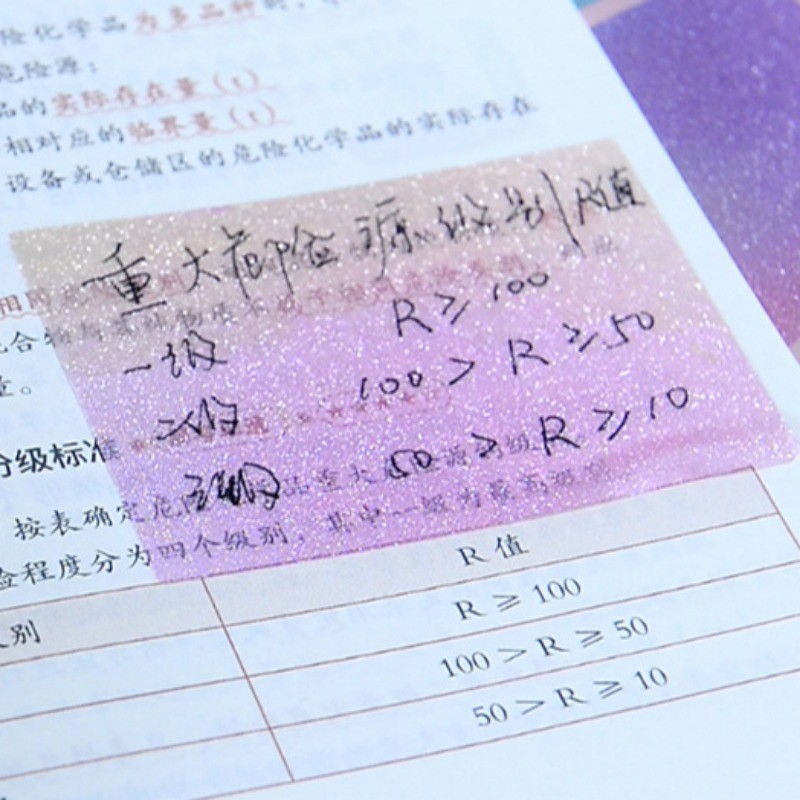 险化学品为多品种时，
危险源：
品的实际存在量（t）
相对应的临界量（t）
设备或仓储区的危险化学品的实际存在
重大危险源级别 R值
一级 R≥100
二级 100>R≥50
三级 50>R≥10
量。
分级标准
按表确定危险品重大危险源的级别
险程度分为四个级别，其中一级为最高级别
级别 R 值
R≥100
100>R≥50
50>R≥10